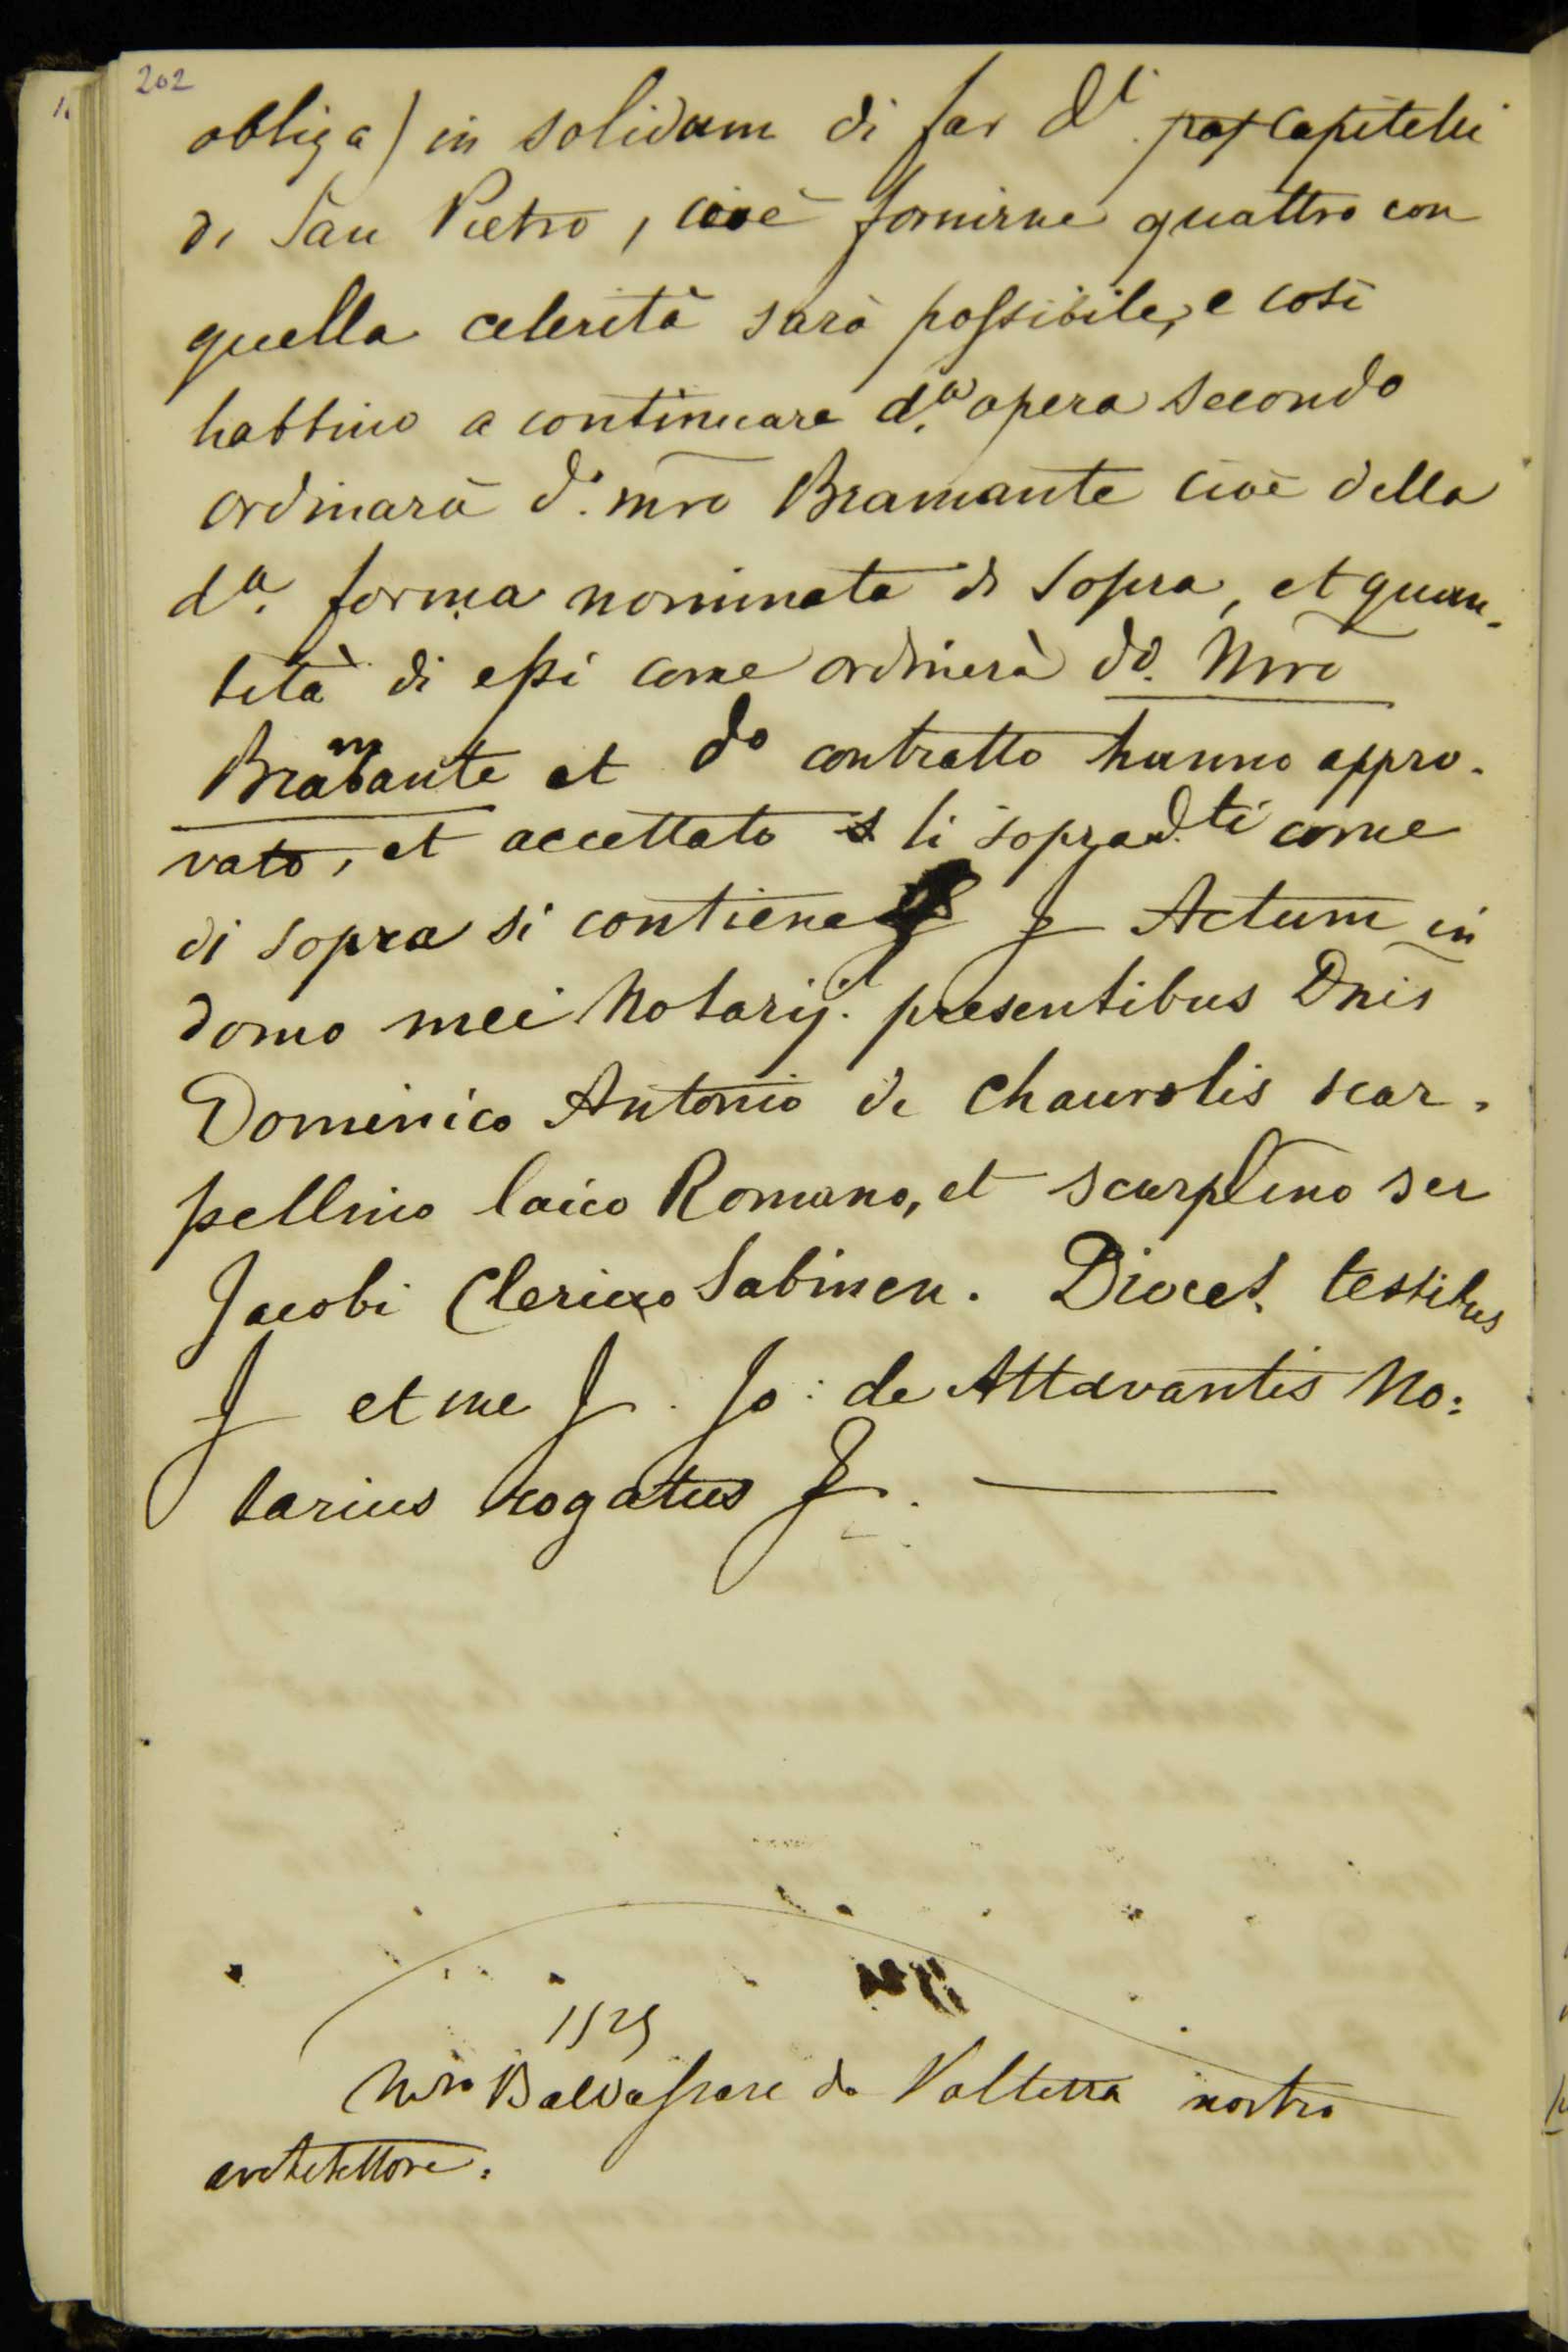 202
obliga) in solidum di far d.i capitelli
di San Pietro, cioè fornirne quattro con
quella celerità sarà possibile, e così
habbino a continuare d.a opera secondo
ordinarà d.o mro Bramante cioè della
d.a forma nominata di sopra, et quan-
tità di essi come ordinerà do. Mro
Bramante et do contratto hanno appro-
vato, et accettato li soprad.ti come
di sopra si contiene Actum in
domo mei Notarij. presentibus Dnis
Dominico Antonio de Chaurolis scar-
pellino laico Romano, et scarplino ser
Jacobi Clerico Sabinen. Dioces. testibus
et me Jo: de Attavantis No:
tarius rogatus
1525
Mro Baldassare da Volterra nostro
architettore.